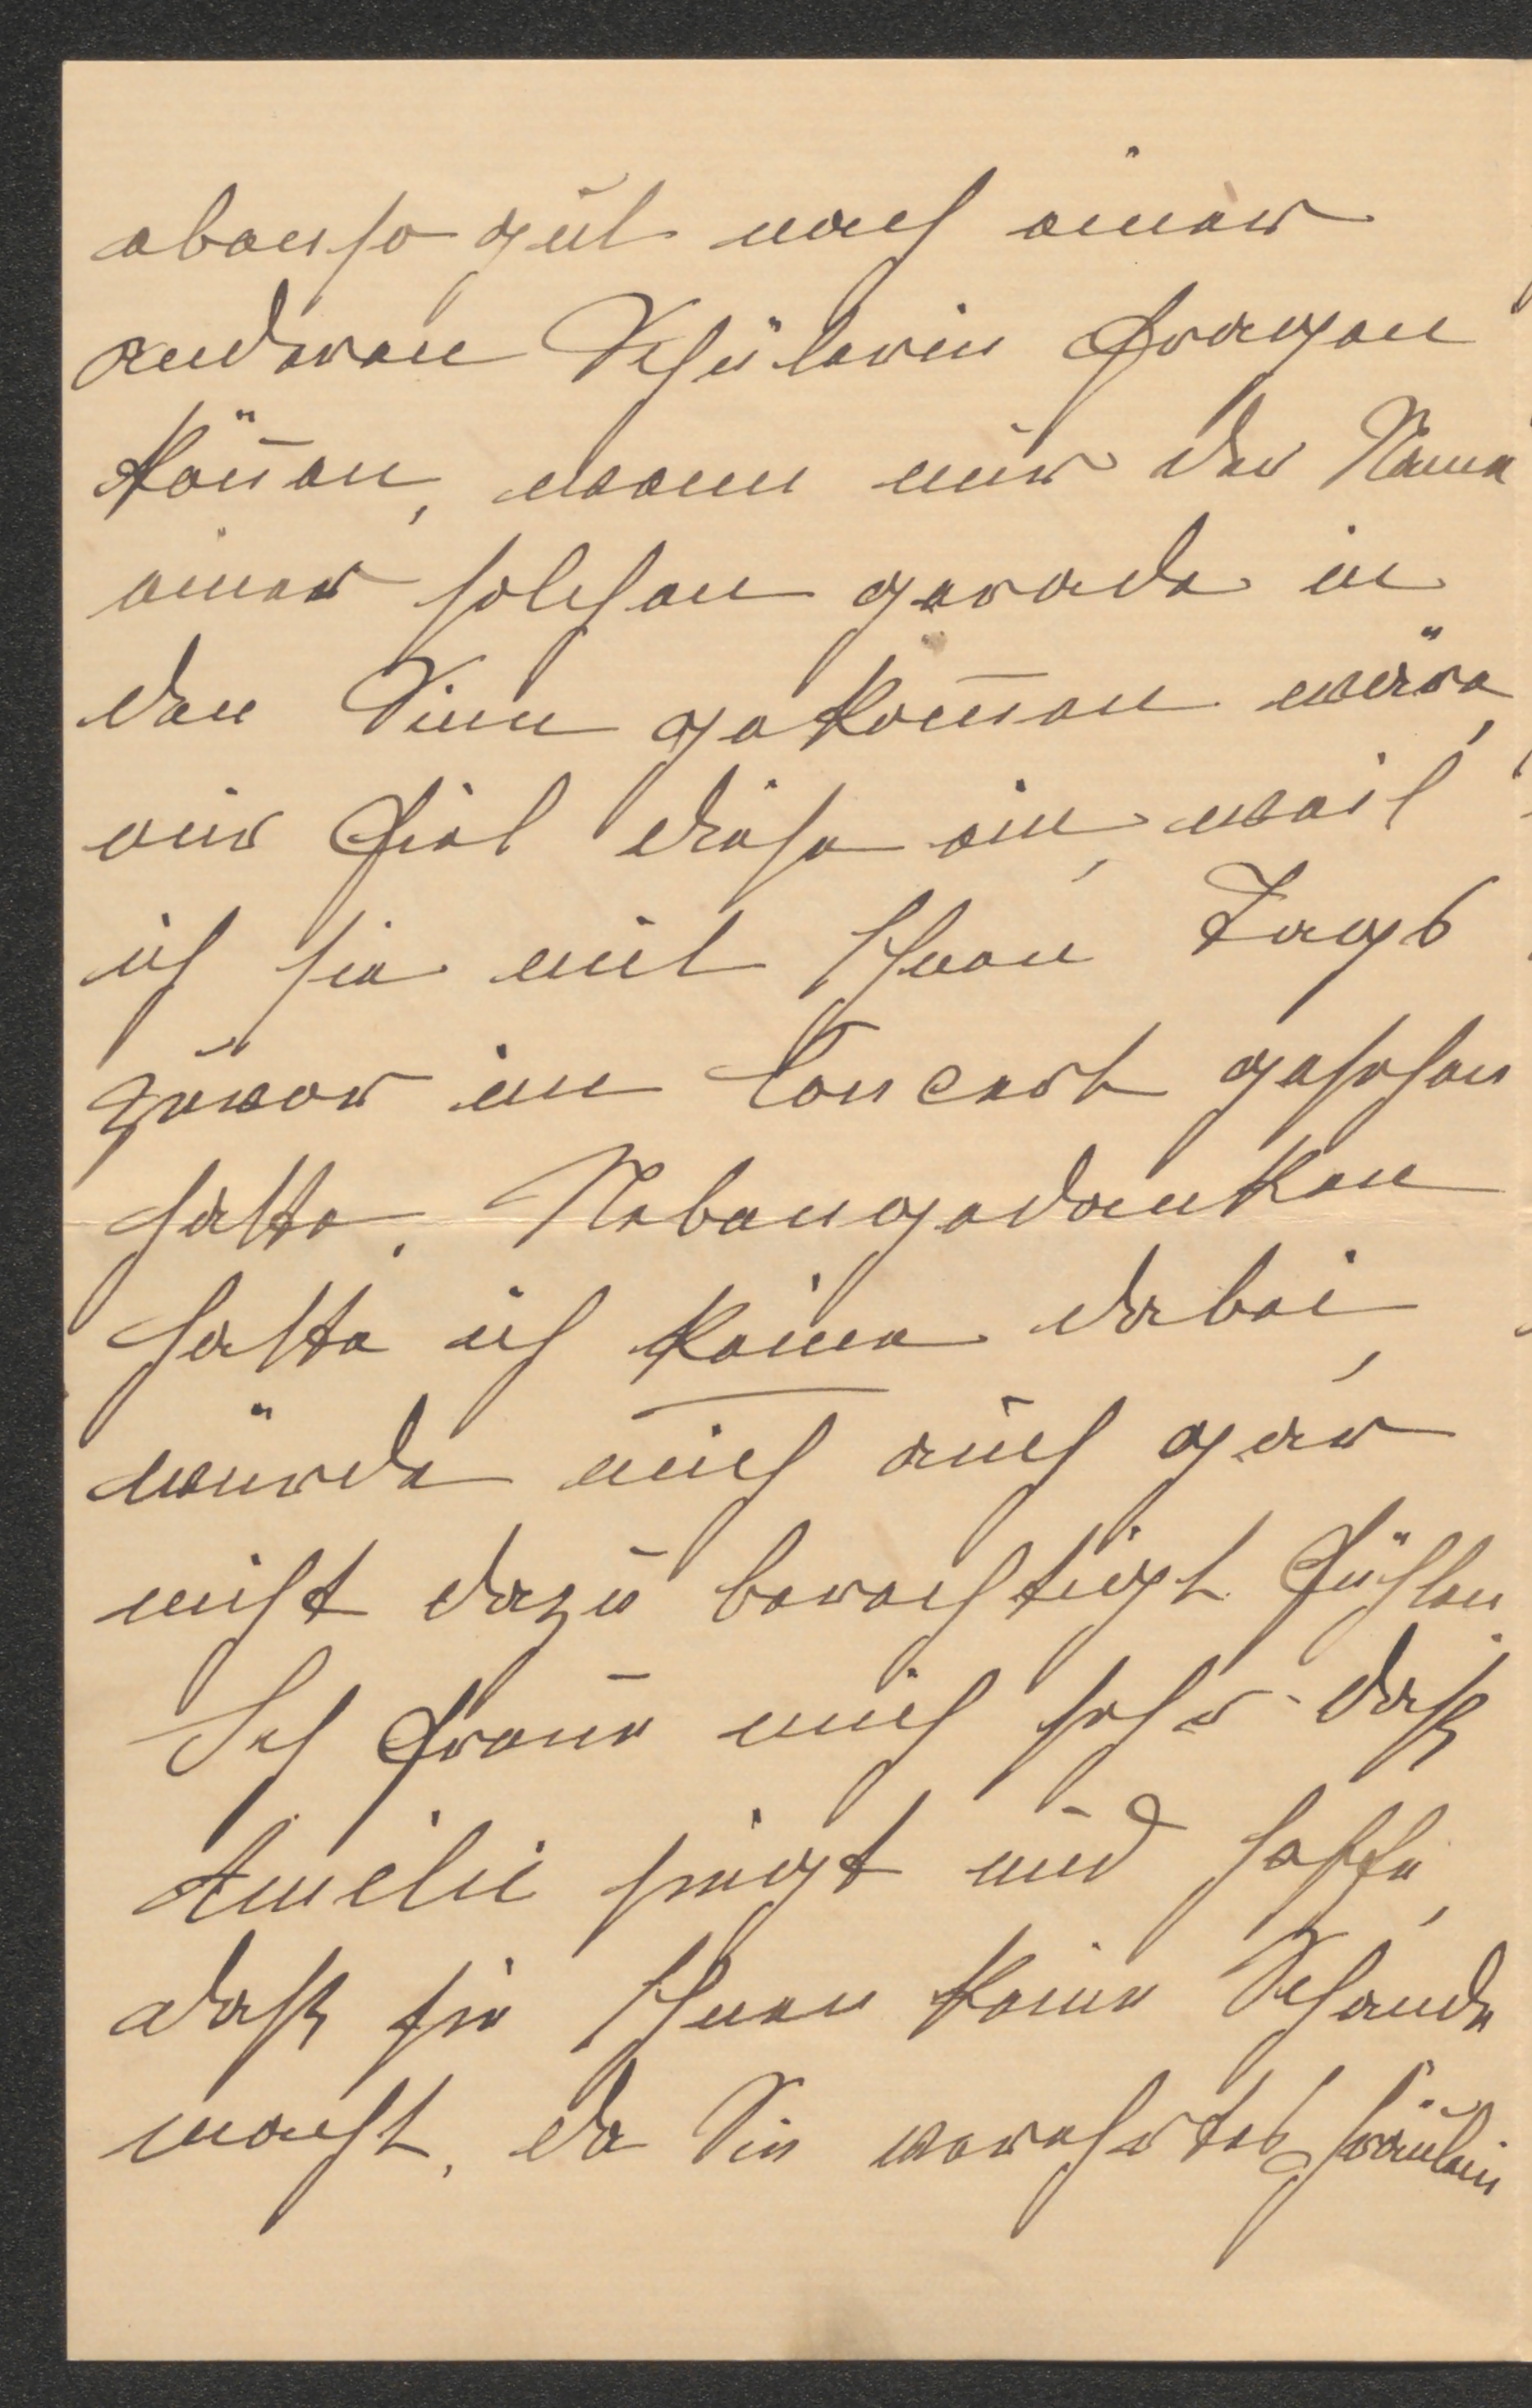 ebenso gut nach einer
anderen Schülerin fragen
kön̄en, wenn mir der Name
einer solchen gerade in
den Sinn gekom̄en wäre,
mir fiel diese ein, weil
ich sie mit Ihnen Tags
zuvor im Concert gesehen
hatte. Nebengedanken
hatte ich keine dabei,
würde mich auch gar
nicht dazu berechtigt fühlen.
Ich freue mich sehr daß
Amelie singt und hoffe,
daß sie Ihnen keine Schande
macht, da Sie verehrtes Fräulein